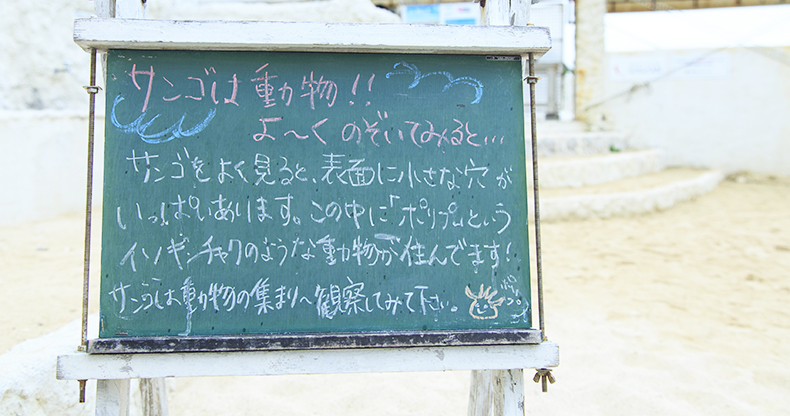 サンゴは動物!!
よ〜くのぞいてみると…
サンゴをよく見ると、表面に小さな穴が
いっぱいあります。この中に「ポリプ」という
イソギンチャクのような動物が住んでます!
サンゴは動物の集まり〜観察してみて下さい。